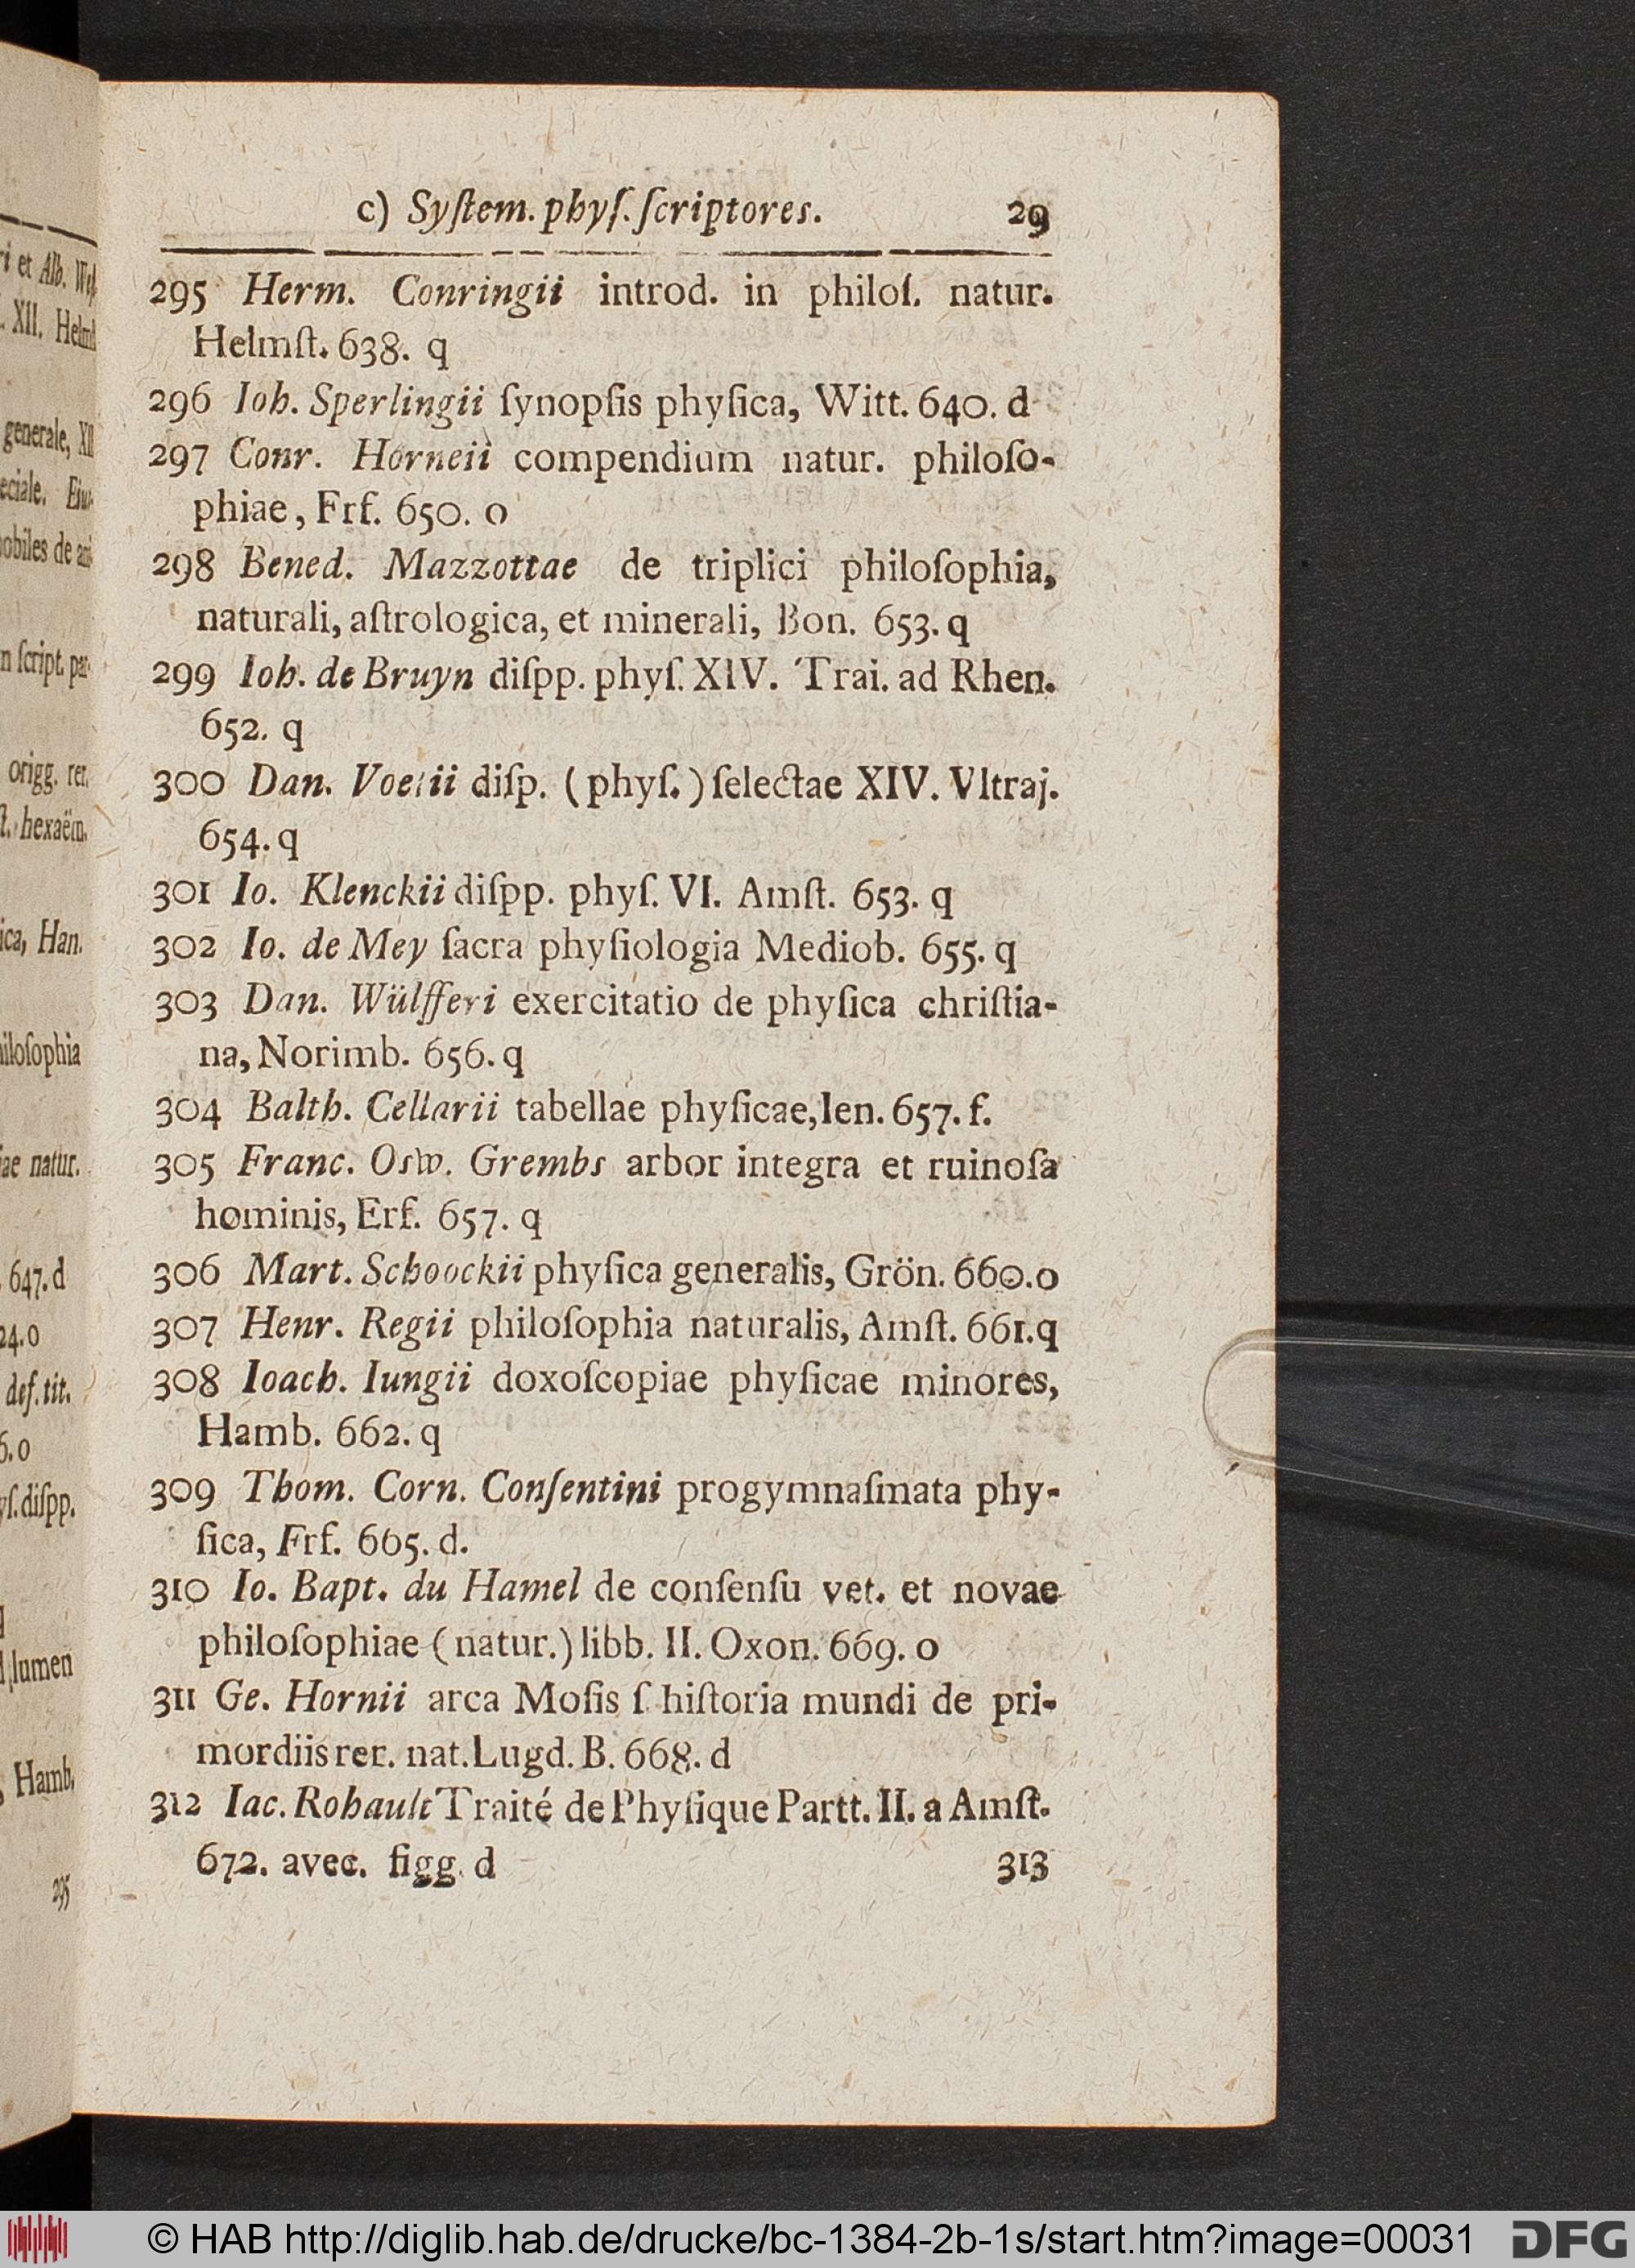 c) Syſtem. phyſ. ſcriptores. 29
295 Herm. Conringii introd. in philoſ. natur.
Helmſt. 638. q
296 Ioh. Sperlingii ſynopſis phyſica, Witt. 640. d
297 Conr. Horneii compendium natur. philoſo-
phiae, Frf. 650. o
298 Bened. Mazzottae de triplici philoſophia,
naturali, aſtrologica, et minerali, Bon. 653. q
299 Ioh. de Bruyn diſpp. phyſ. XIV. Trai. ad Rhen.
652. q
300 Dan. Voetii diſp. (phyſ.) ſelectae XIV. Vltraj.
654. q
301 Io. Klenckii diſpp. phyſ. VI. Amſt. 653. q
302 Io. de Mey ſacra phyſiologia Mediob. 655. q
303 Dan. Wülfferi exercitatio de phyſica chriſtia-
na, Norimb. 656. q
304 Balth. Cellarii tabellae phyſicae, Ien. 657. f.
305 Franc. Osw. Grembs arbor integra et ruinoſa
hominis, Erf. 657. q
306 Mart. Schoockii phyſica generalis, Grön. 660. o
307 Henr. Regii philoſophia naturalis, Amſt. 661. q
308 Ioach. Iungii doxoſcopiae phyſicae minores,
Hamb. 662. q
309 Thom. Corn. Conſentini progymnaſmata phy-
ſica, Frf. 665. d.
310 Io. Bapt. du Hamel de conſenſu vet. et novae
philoſophiae (natur.) libb. II. Oxon. 669. o
311 Ge. Hornii arca Moſis ſ hiſtoria mundi de pri-
mordiis rer. nat. Lugd. B. 668. d
312 Iac. Rohault Traité de Phyſique Partt. II. a Amſt.
672. avec. figg. d 313
et Alb.
XII.
generale,
n ſcript.
origg. rer.
hexaëm.
ica, Han.
iae natur.
647. d
24. o
def. tit.
6. o
diſpp.
lumen
Hamb.
295
© HAB http://diglib.hab.de/drucke/bc-1384-2b-1s/start.htm?image=00031 DFG